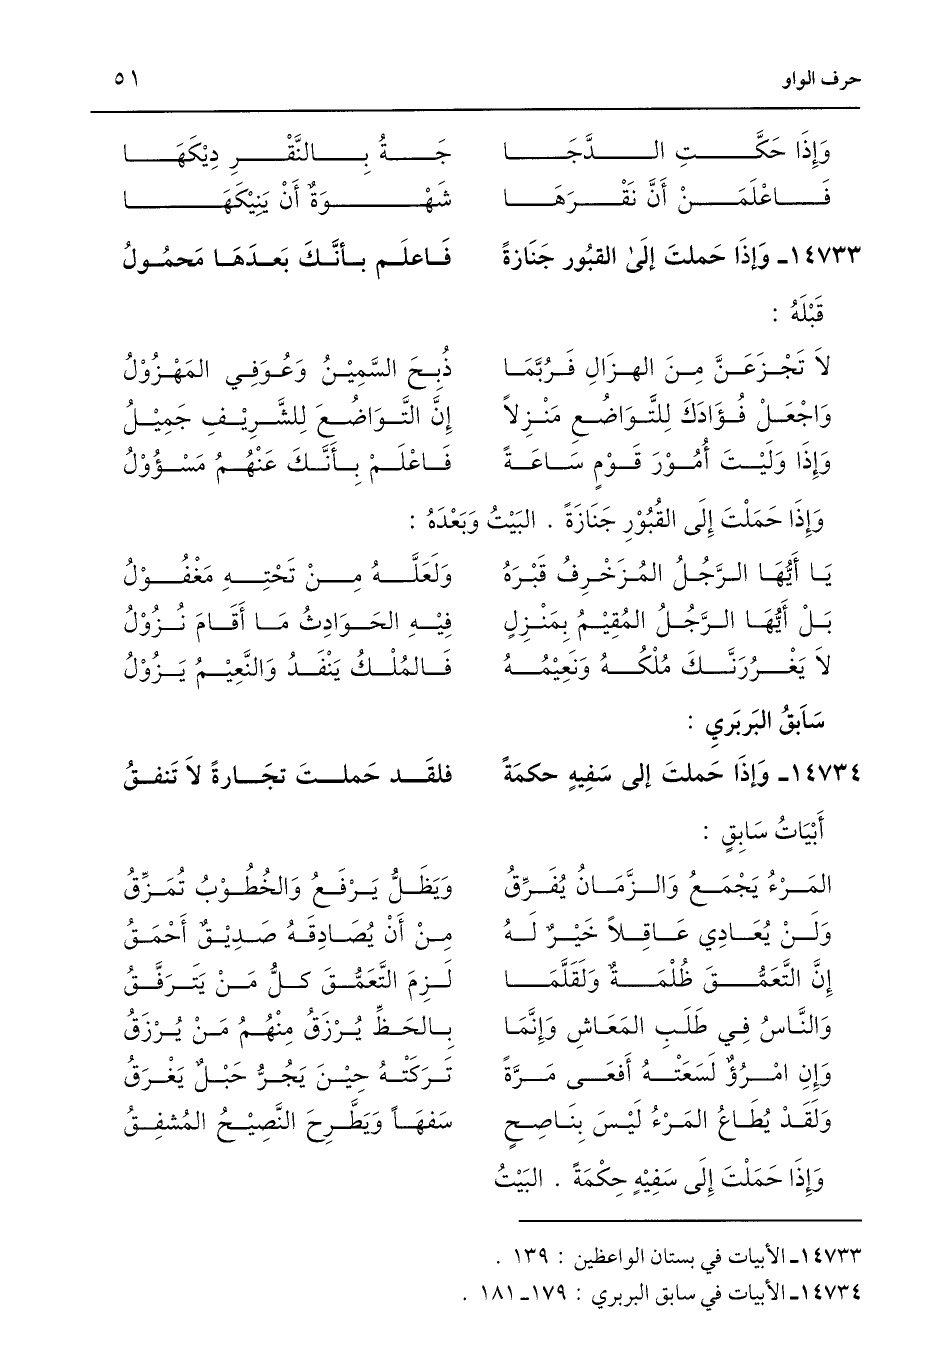 حرف الواو ٥١
وَإِذَا حَكَّتِ الدَّجَا جَةُ بِالنَّقْرِ دِيْكَهَا
فَاعْلَمَنْ أَنَّ نَقْرَهَا شَهْوَةٌ أَنْ يَنِيْكَهَا
١٤٧٣٣ـ وَإِذَا حَملتَ إِلىٰ القبُورِ جَنَازةً فَاعلَم بأنَّكَ بَعدَهَا مَحمُولُ
قَبْلَهُ :
لاَ تَجْزَعَنَّ مِنَ الهِزَالِ فَرُبَّمَا ذُبِحَ السَّمِيْنُ وَعُوفِيَ المَهْزُوْلُ
وَاجْعَلْ فُؤَادَكَ لِلتَّوَاضُعِ مَنْزِلاً إِنَّ التَّوَاضُعَ لِلشَّرِيْفِ جَمِيْلُ
وَإِذَا وَلِيْتَ أُمُوْرَ قَوْمٍ سَاعَةً فَاعْلَمْ بِأَنَّكَ عَنْهُمُ مَسْؤُوْلُ
وَإِذَا حَمَلْتَ إِلَى القُبُوْرِ جَنَازَةً . البَيْتُ وَبَعْدَهُ :
يَا أَيُّهَا الرَّجُلُ المُزَخْرِفُ قَبْرَهُ وَلَعَلَّهُ مِنْ تَحْتِهِ مَغْفُوْلُ
بَلْ أَيُّهَا الرَّجُلُ المُقِيْمُ بِمَنْزِلٍ فِيْهِ الحَوَادِثُ مَا أَقَامَ نُزُوْلُ
لاَ يَغْرُرَنَّكَ مُلْكَهُ وَنَعِيْمُهُ فَالمُلْكُ يَنْفَدُ وَالنَّعِيْمُ يَزُوْلُ
سَابقُ البَربَرِي :
١٤٧٣٤ـ وَإِذَا حَملتَ إِلى سَفِيهٍ حكمَةً فلقَد حَملتَ تجَارةً لاَ تَنفقُ
أَبْيَاتُ سَابِقٍ :
المَرْءُ يَجْمَعُ وَالزَّمَانُ يُفَرِّقُ وَيَظَلُّ يَرْفَعُ وَالخُطُوْبُ تُمَزِّقُ
وَلَنْ يُعَادِي عَاقِلاً خَيْرٌ لَهُ مِنْ أَنْ يُصَادِقَهُ صَدِيْقٌ أَحْمَقُ
إِنَّ التَّعَمُّقَ ظُلْمَةٌ وَلَقَلَّمَا لَزِمَ التَّعَمُّقَ كُلُّ مَنْ يَتَرَفَّقُ
وَالنَّاسُ فِي طَلَبِ المَعَاشِ وَإِنَّمَا بِالحَظِّ يُرْزَقُ مِنْهُمُ مَنْ يُرْزَقُ
وَإِنِ امْرُؤٌ لَسَعَتْهُ أَفعَى مَرَّةً تَرَكَتْهُ حِيْنَ يَجُرُّ حَبْلٌ يَفْرَقُ
وَلَقَدْ يُطَاعُ المَرْءُ لَيْسَ بِنَاصِحٍ سَفَهَاً وَيَطَّرِحُ النَّصِيْحُ المُشْفِقُ
وَإِذَا حَمَلْتَ إِلَى سَفِيْهٍ حِكْمَةً . البَيْتُ
١٤٧٣٣ـ الأبيات في بستان الواعظين : ١٣٩ .
١٤٧٣٤ـ الأبيات في سابق البربري : ١٧٩ـ ١٨١ .